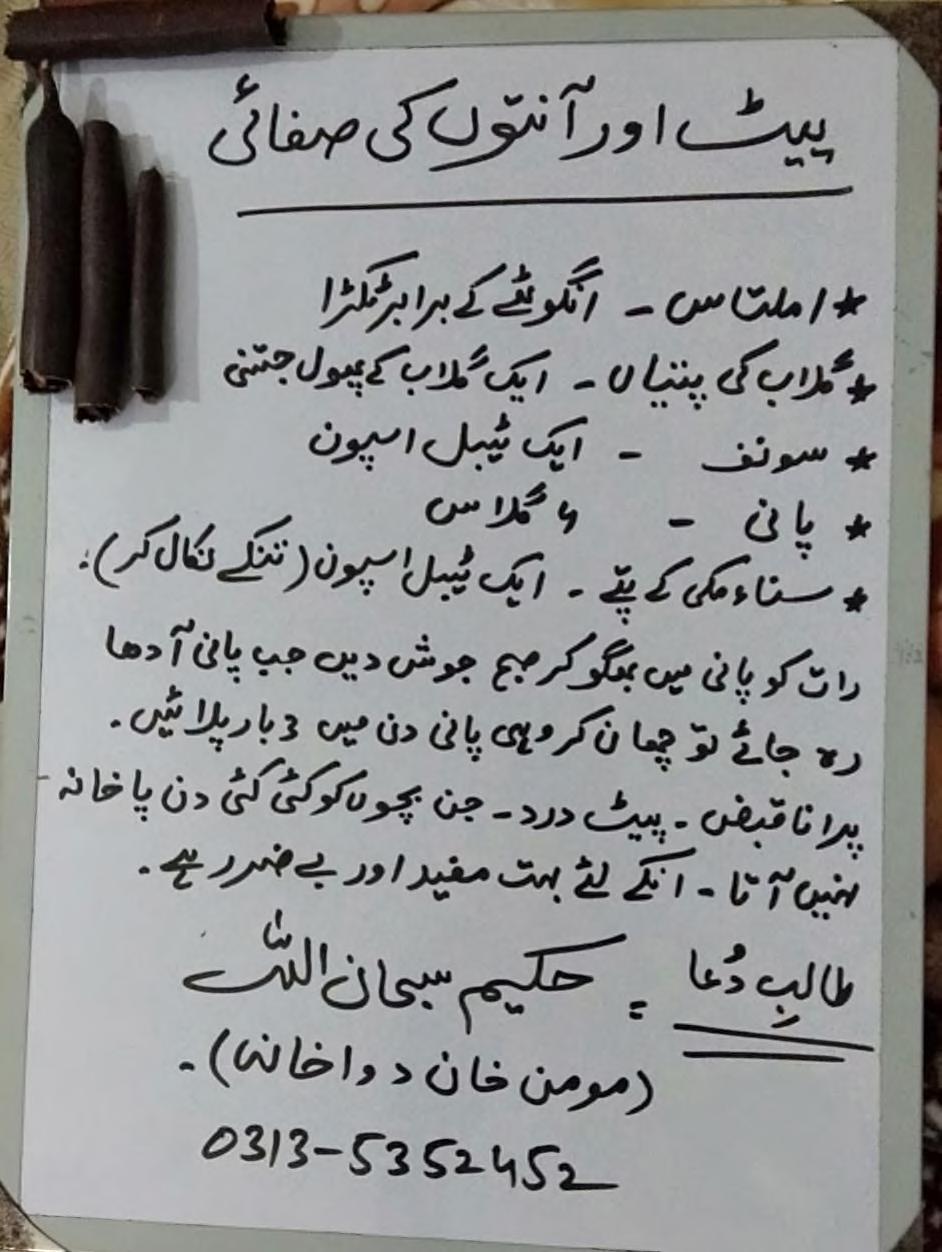 پیٹ اور آنتوں کی صفائی
* املتاس - انگوٹھے کے برابر ٹکڑا
* گلاب کی پتیاں - ایک گلاب کے پھول جتنی
* سونف - ایک ٹیبل اسپون
* پانی - گلاس
* سناء مکی کے پتے - ایک ٹیبل اسپون (تنکے نکال کر).
رات کو پانی میں بھگو کر صبح جوش دیں جب پانی آدھا
رہ جائے تو چھان کر وہی پانی دن میں 3 بار پلائیں.
پرانا قبض - پیٹ درد - جن بچوں کو کئی کئی دن پاخانہ
نہیں آتا - انکے لئے بہت مفید اور بے ضرر ہے.
طالبِ دُعا = حکیم سبحان اللہ
(مومن خان دواخانہ).
0313-5352452